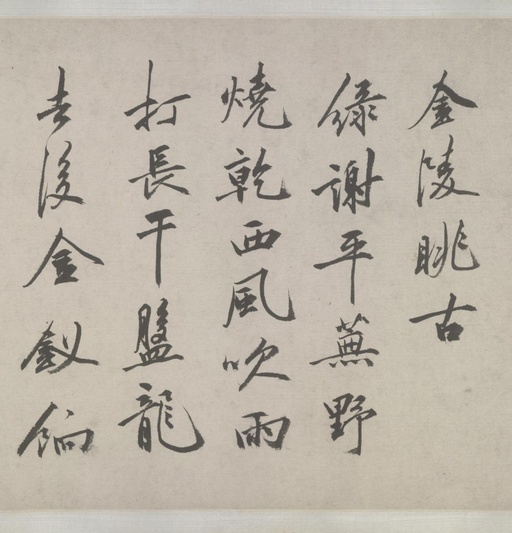 金陵眺古
綠謝平蕪野
燒乾西風吹雨
打長干盤龍
去後金釵